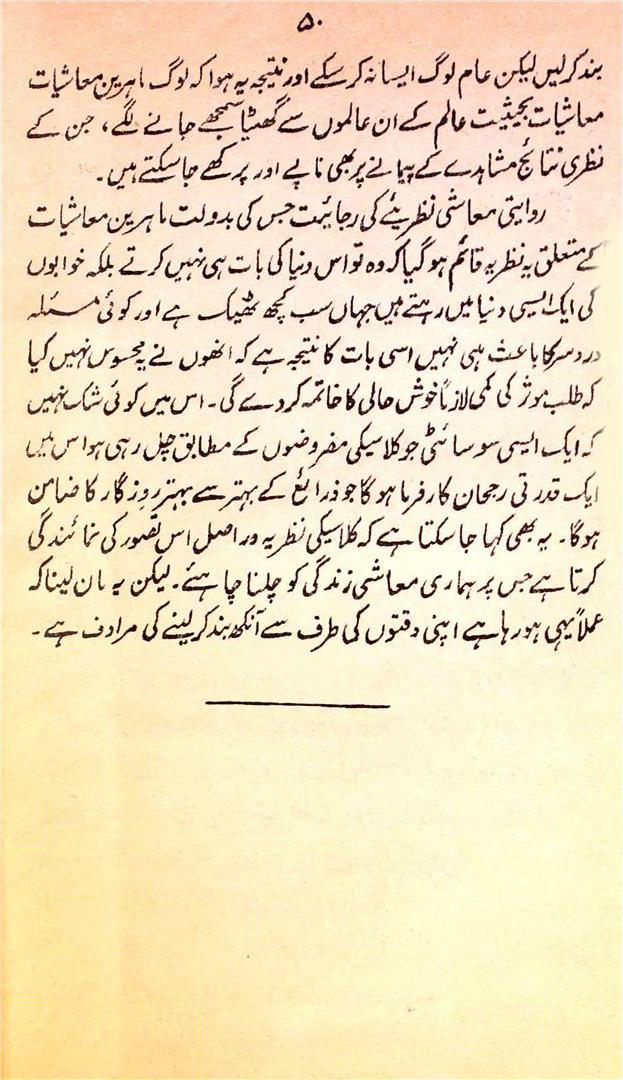 ۵۰
بند کر لیں لیکن عام لوگ ایسا نہ کر سکے اور نتیجہ یہ ہوا کہ لوگ ماہرین معاشیات
معاشیات بحیثیت عالم کے ان عالموں سے گھٹیا سمجھے جانے لگے، جن کے
نظری نتائج مشاہدے کے پیمانے پر بھی ناپے اور پرکھے جا سکتے ہیں۔
روایتی معاشی نظریئے کی رجائیت جس کی بدولت ماہرین معاشیات
کے متعلق یہ نظریہ قائم ہو گیا کہ وہ تو اس دنیا کی بات ہی نہیں کرتے بلکہ خوابوں
کی ایک ایسی دنیا میں رہتے ہیں جہاں سب کچھ ٹھیک ہے اور کوئی مسئلہ
دردسر کا باعث ہی نہیں اسی بات کا نتیجہ ہے کہ انھوں نے یہ محسوس نہیں کیا
کہ طلب موثر کی کمی لازماً خوش حالی کا خاتمہ کر دے گی۔ اس میں کوئی شک نہیں
کہ ایک ایسی سوسائٹی جو کلاسیکی مفروضوں کے مطابق چل رہی ہو اس میں
ایک قدرتی رجحان کارفرما ہو گا جو ذرائع کے بہتر سے بہتر روزگار کا ضامن
ہو گا۔ یہ بھی کہا جا سکتا ہے کہ کلاسیکی نظریہ دراصل اس تصور کی نمائندگی
کرتا ہے جس پر ہماری معاشی زندگی کو چلنا چاہئے۔ لیکن یہ مان لینا کہ
عملاً یہی ہو رہا ہے اپنی دقتوں کی طرف سے آنکھ بند کر لینے کی مرادف ہے۔